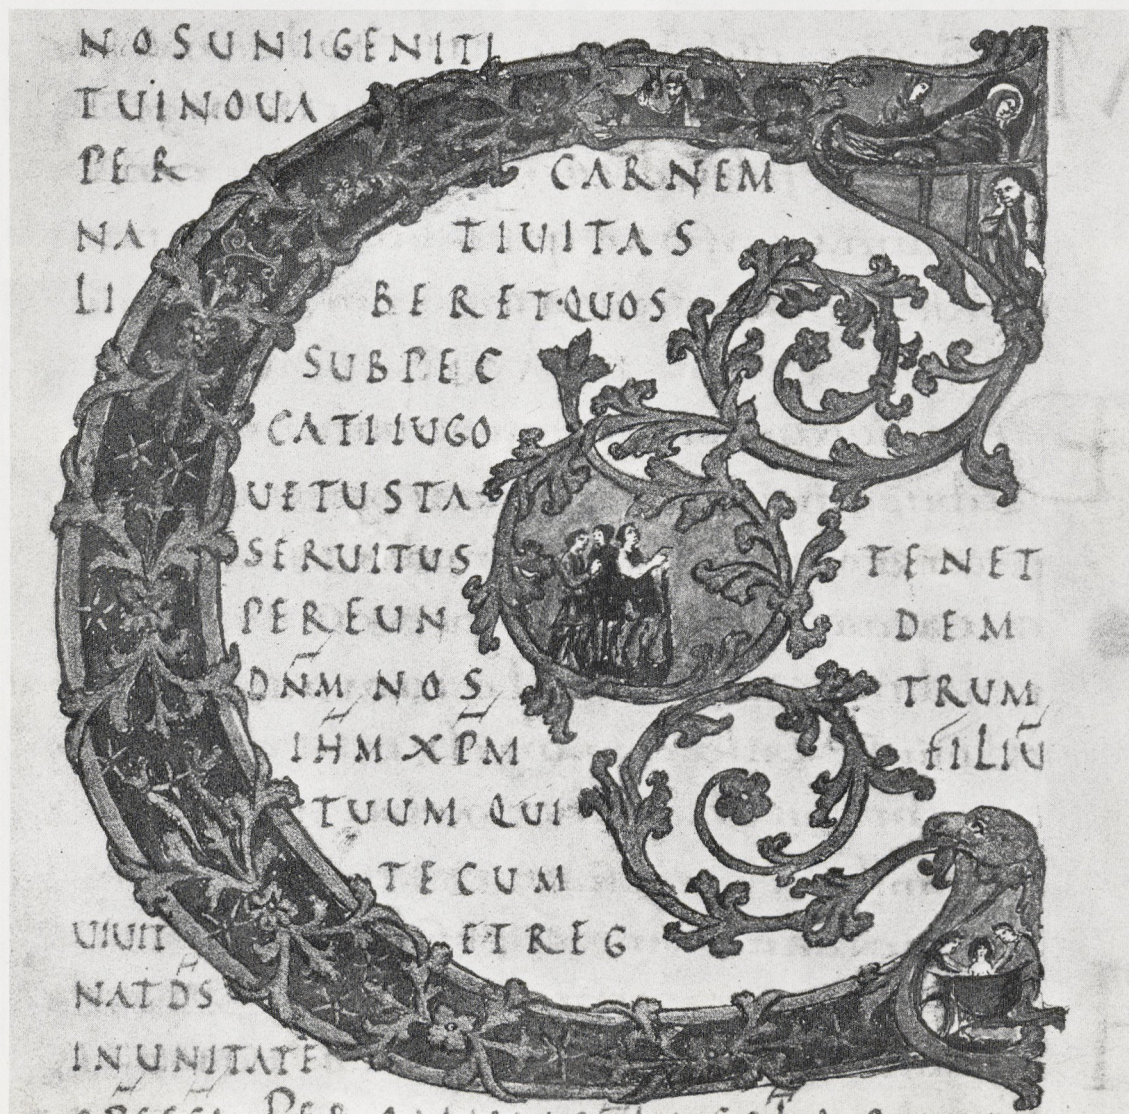 NOSUNIGENITI
TUINOUA
PER CARNEM
NA TIUITAS
LI BERET·QUOS
SUBPEC
CATIIUGO
UETUSTA
SERUITUS TENET
PEREUN DEM
DN̅M NOS TRUM
IHM XP̅M FILIU̅
TUUM QUI
TECUM
UIUIT ET REG
NAT D̅S
INUNITATE